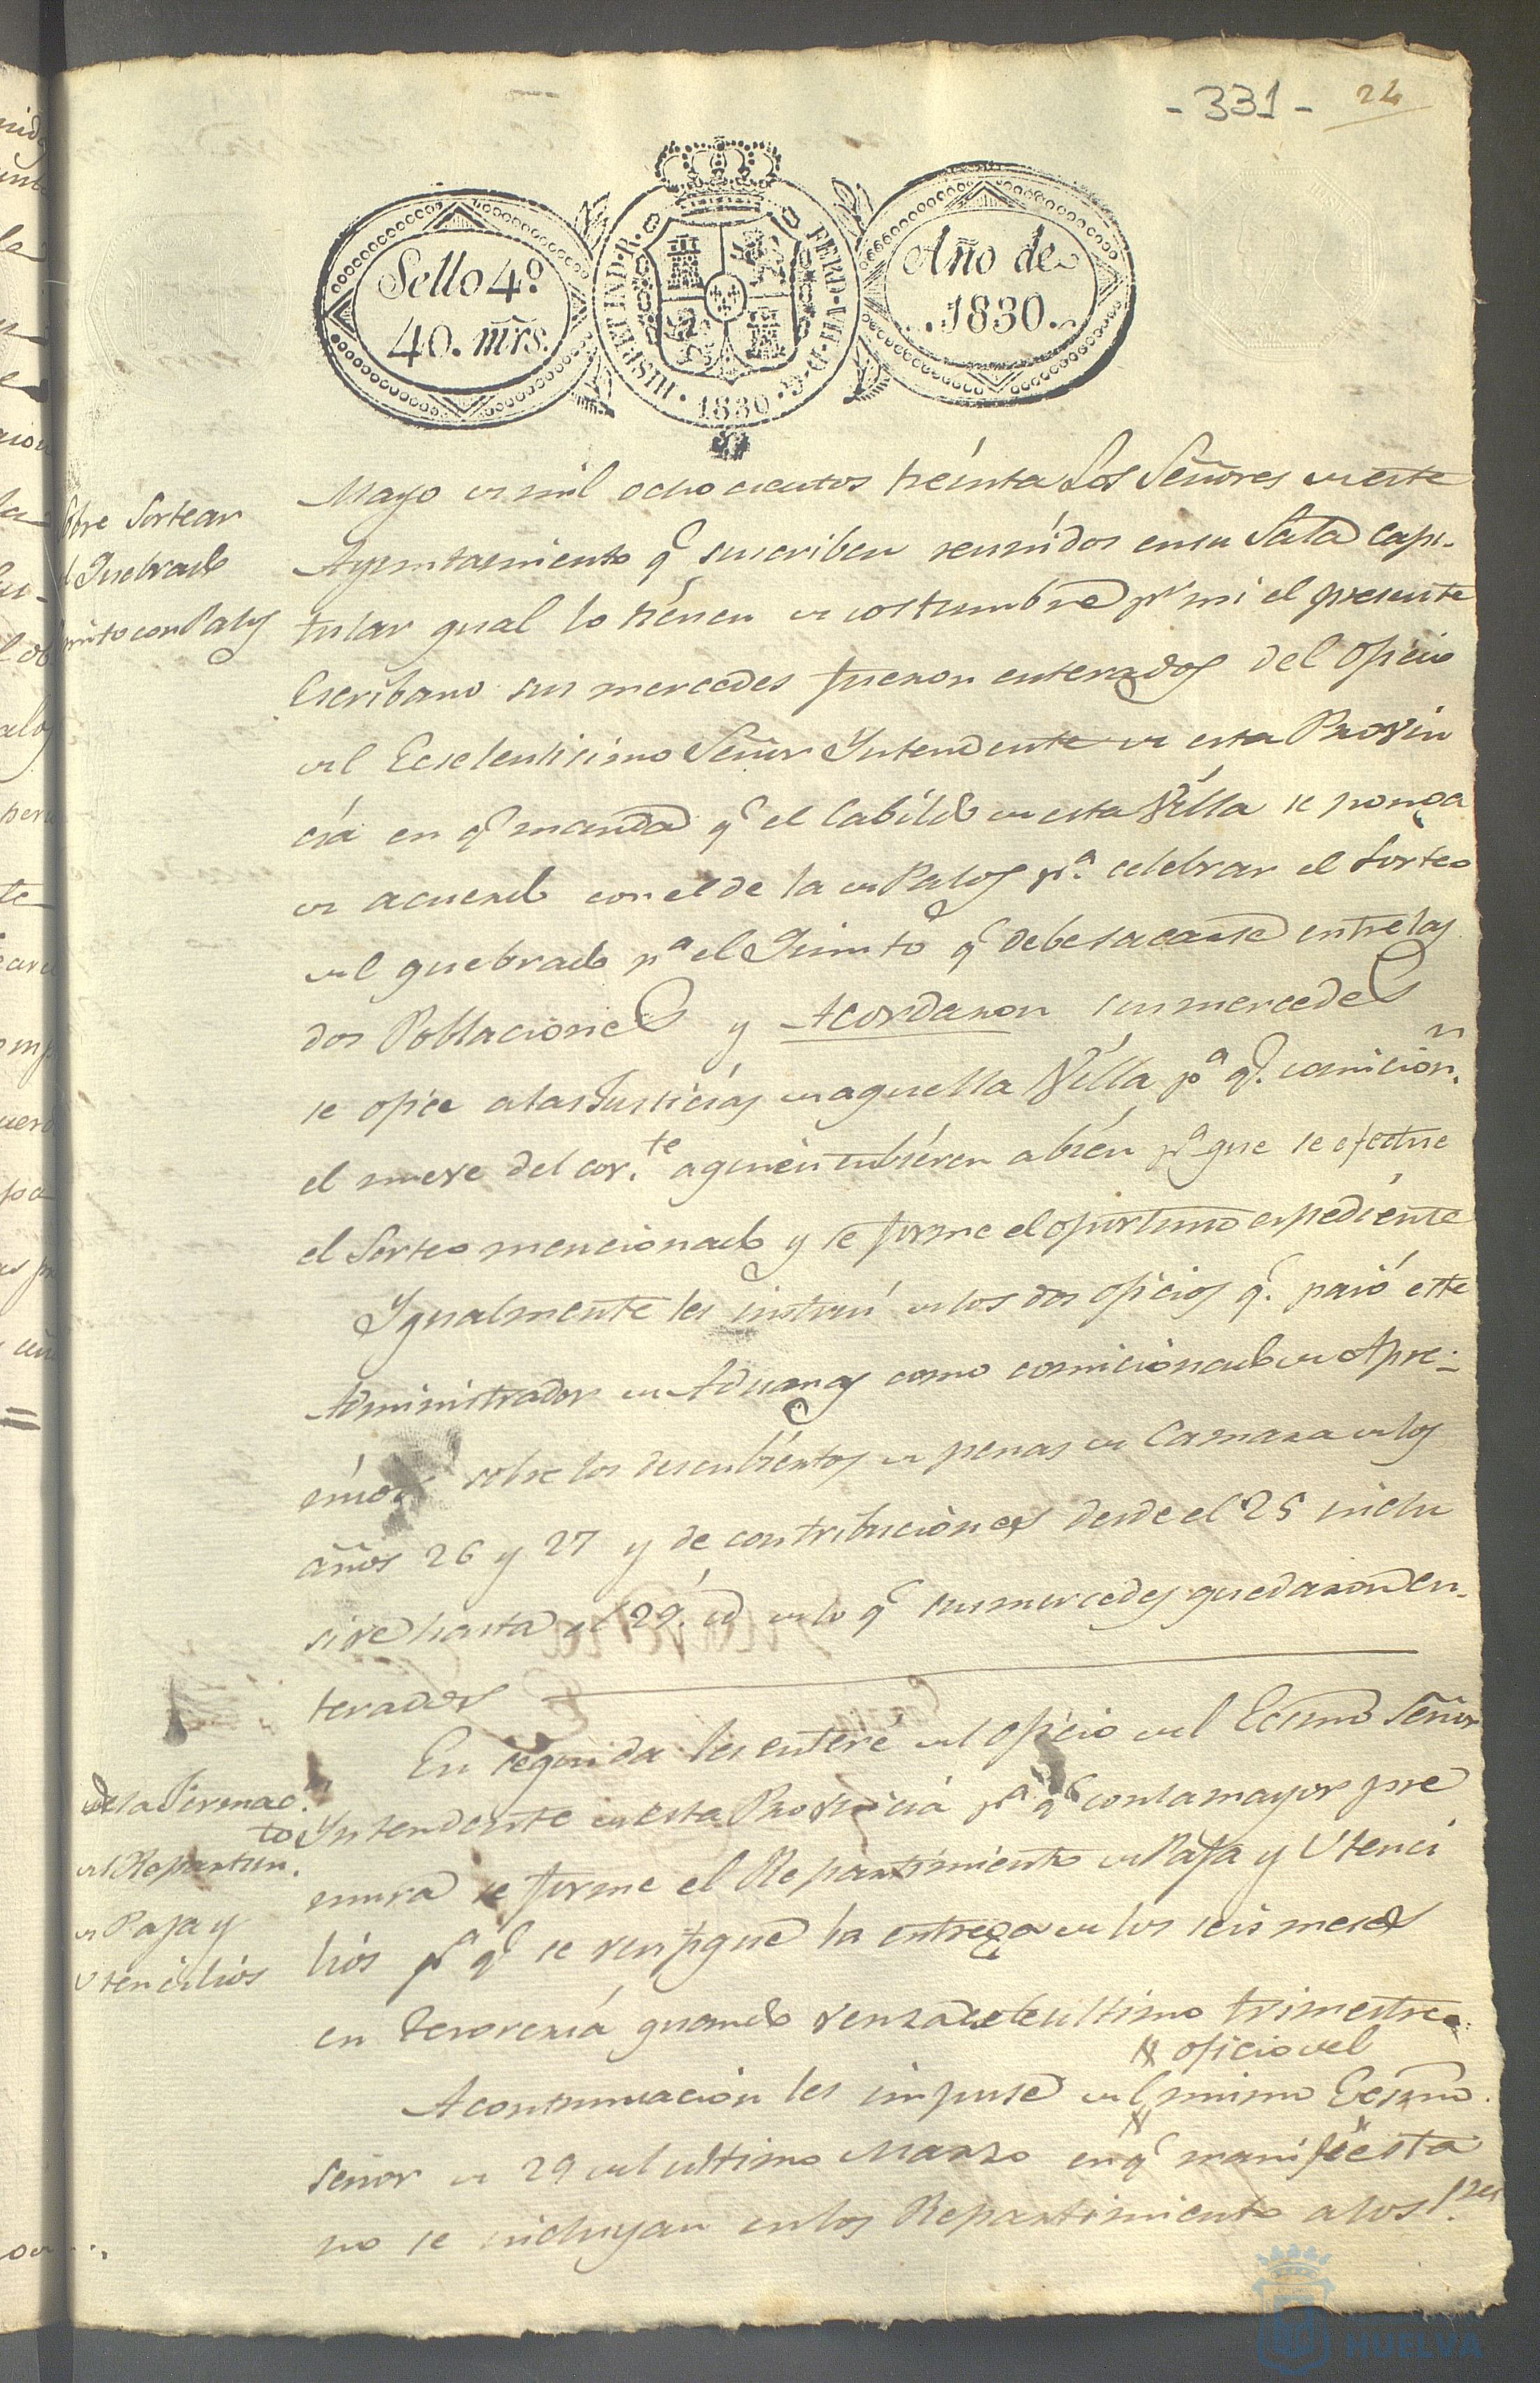 - 331 -
24
Sello 4º
40. mrs.
HISP. ET IND. R.
FERD. VII. D. G.
1830
Año de
1830.
Mayo de mil ochocientos treinta Los Señores de este
Ayuntamiento q.e suscriben reunidos en su Sala Capi-
tular qual lo tienen de costumbre p.r mi el presente
Escribano sus mercedes fueron enterados del oficio
del Ecselentisimo Señor Yntendente de esta Provin
cia en q.e manda q.e el Cabildo de esta Villa se ponga
de acuerdo con el de la de Palos p.a celebrar el Sorteo
del quebrado p.a el Quinto q.e debe sacarse entre las
dos Poblaciones y Acordaron sus mercedes
se oficie a las Justicias de aquella Villa p.a q.e comicion.n
el nueve del cor.te a quien tubieren a bien p.a que se efectue
el Sorteo mencionado y se forme el oportuno espediente
Ygualmente les instruí de los dos oficios q.e pasó este
Administrador de Aduanas como comicionado de Apre-
mios sobre los descubiertos de penas de Camara de los
años 26 y 27 y de contribuciones desde el 25 inclu
sive hasta el 29. id de lo q.e sus mercedes quedaron en-
terados
En seguida les enteré del oficio del Ecsmo Señor
Yntendente de esta Provincia p.a q.e con la mayor pre
mura se forme el Repartimiento de Paja y Utenci
lios p.a q.e se verifique la entrega de los seis meses
en tesorería quando venza este ultimo trimestre.
oficio del
A continuación les impuse del mismo Ecsmo.
Señor de 29 del ultimo Marzo en q.e manifiesta
no se incluyan en los Repartimiento a los
Sobre Sortear
el Quebrado
quinto con Palos
De la Formac.n
del Repartim.to
de Paja y
Utencilios
HUELVA